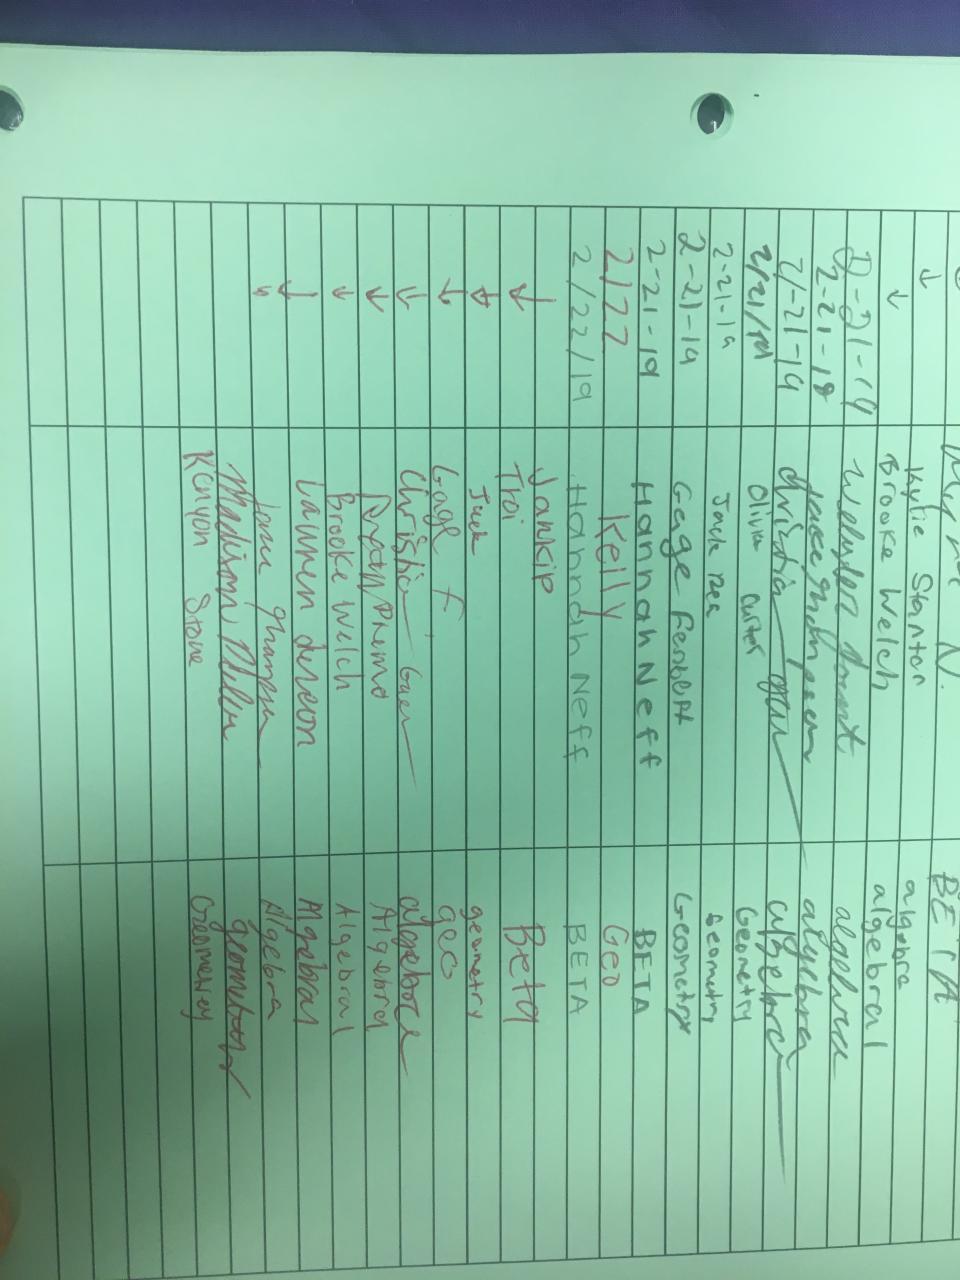 N. BETA
↓ Kylie Stanton algebra
↓ Brooke Welch algebra1
2-21-19 algebra
2-21-19 algebra
2-21-19 Christian algebra
2/21/19 Olivia Carter Geometry
2-21-19 Jack Geometry
2-21-19 Gage Geometry
2-21-19 Hannah Neff BETA
2/22 Kelly Geo
2/22/19 Hannah Neff BETA
Jankip
↓ Troi Beta
↓ Jack geometry
↓ Gage F geo
↓ Christian algebra
↓ Algebra1
↓ Brooke Welch Algebra1
↓ Lauren Algebra1
↓ Algebra
Madison geometry
Kenyon Stone Geometry